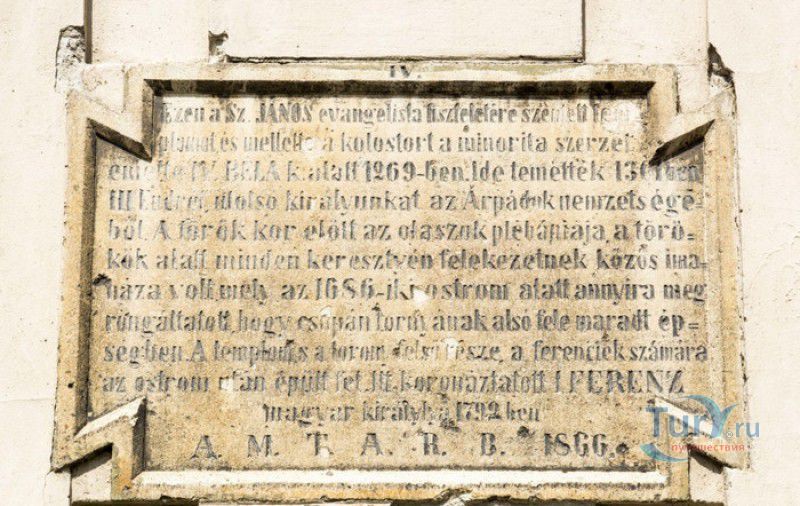 IV.
Ezen a Sz. JÁNOS evangelista tiszteletére szentelt tem
plomot és mellette a kolostort a minorita szerzet
emelte IV. BÉLA k. alatt 1269-ben. Ide temették 1301ben
III Endrét utolsó királyunkat az Árpádok nemzetségé=
ből. A török kor előtt az olaszok plébániája, a törö=
kök alatt minden keresztyén felekezetnek közös ima=
háza volt mely az 1686-iki ostrom alatt annyira meg
rongáltatott, hogy csupán tornyának alsó fele maradt ép=
ségben. A templom s a torony felső része, a ferenciek számára
az ostrom után épült fel. Itt koronáztatott I. FERENZ
magyar királylyá 1792 ben
A. M. T. A. R. B. 1866.
Tury.ru
путешествия